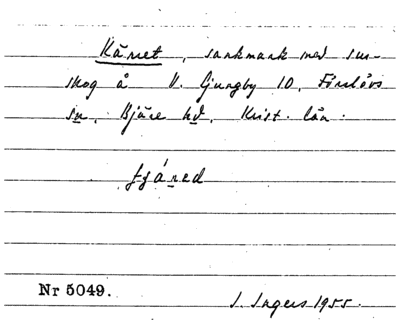 Kärret, sankmark med sur-
skog å V. Ljungby 10, Förslövs
sn, Bjäre hd, Krist. län.
Nr 5049.
I. Ingers 1955.